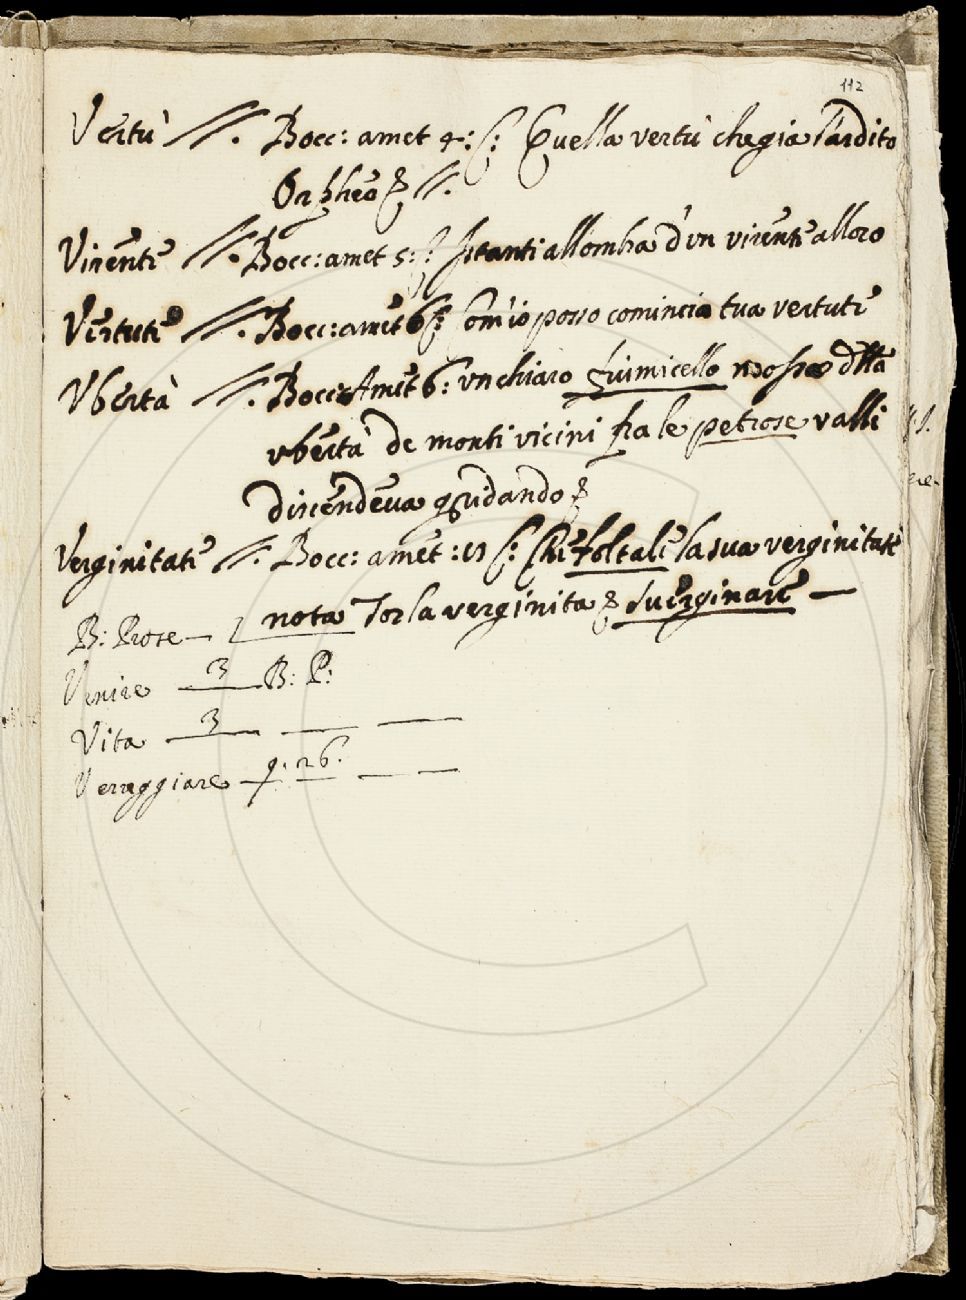 112
Vertù //. Bocc: amet 4: s: Quella vertù che già l'ardito
Orpheo &//.
Virente //. Bocc: amet 5: s: stanti all ombra d'un virente alloro
Vertute //. Bocc: amet 6 s: Com'io posso comincia tua vertute
Vbertà //. Bocc: Amet 6: vn chiaro fiumicello mosso dlla
vbertà de monti vicini fra le petrose valli
discendeua gridando &
Verginitate //. Bocc: amet: s: che toltale la sua verginitate
nota Tor la verginita & suerginare —
B: Prose —
Venire — 3 — B: P:
Vita — 3 — — —
Veraggiare — 9. 26. — —